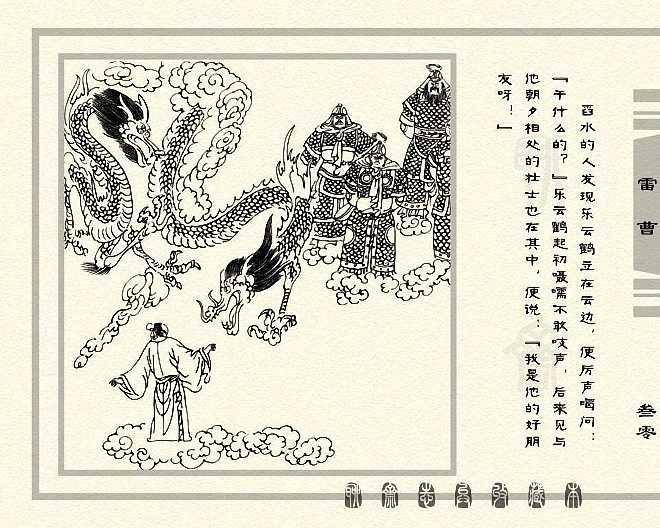 舀水的人发现乐云鹤立在云边，便厉声喝问：
“干什么的？”乐云鹤起初嗫嚅不敢吱声，后来见与
他朝夕相处的壮士也在其中，便说：“我是他的好朋
友呀！”
雷曹
叁零
聊斋志异收藏本